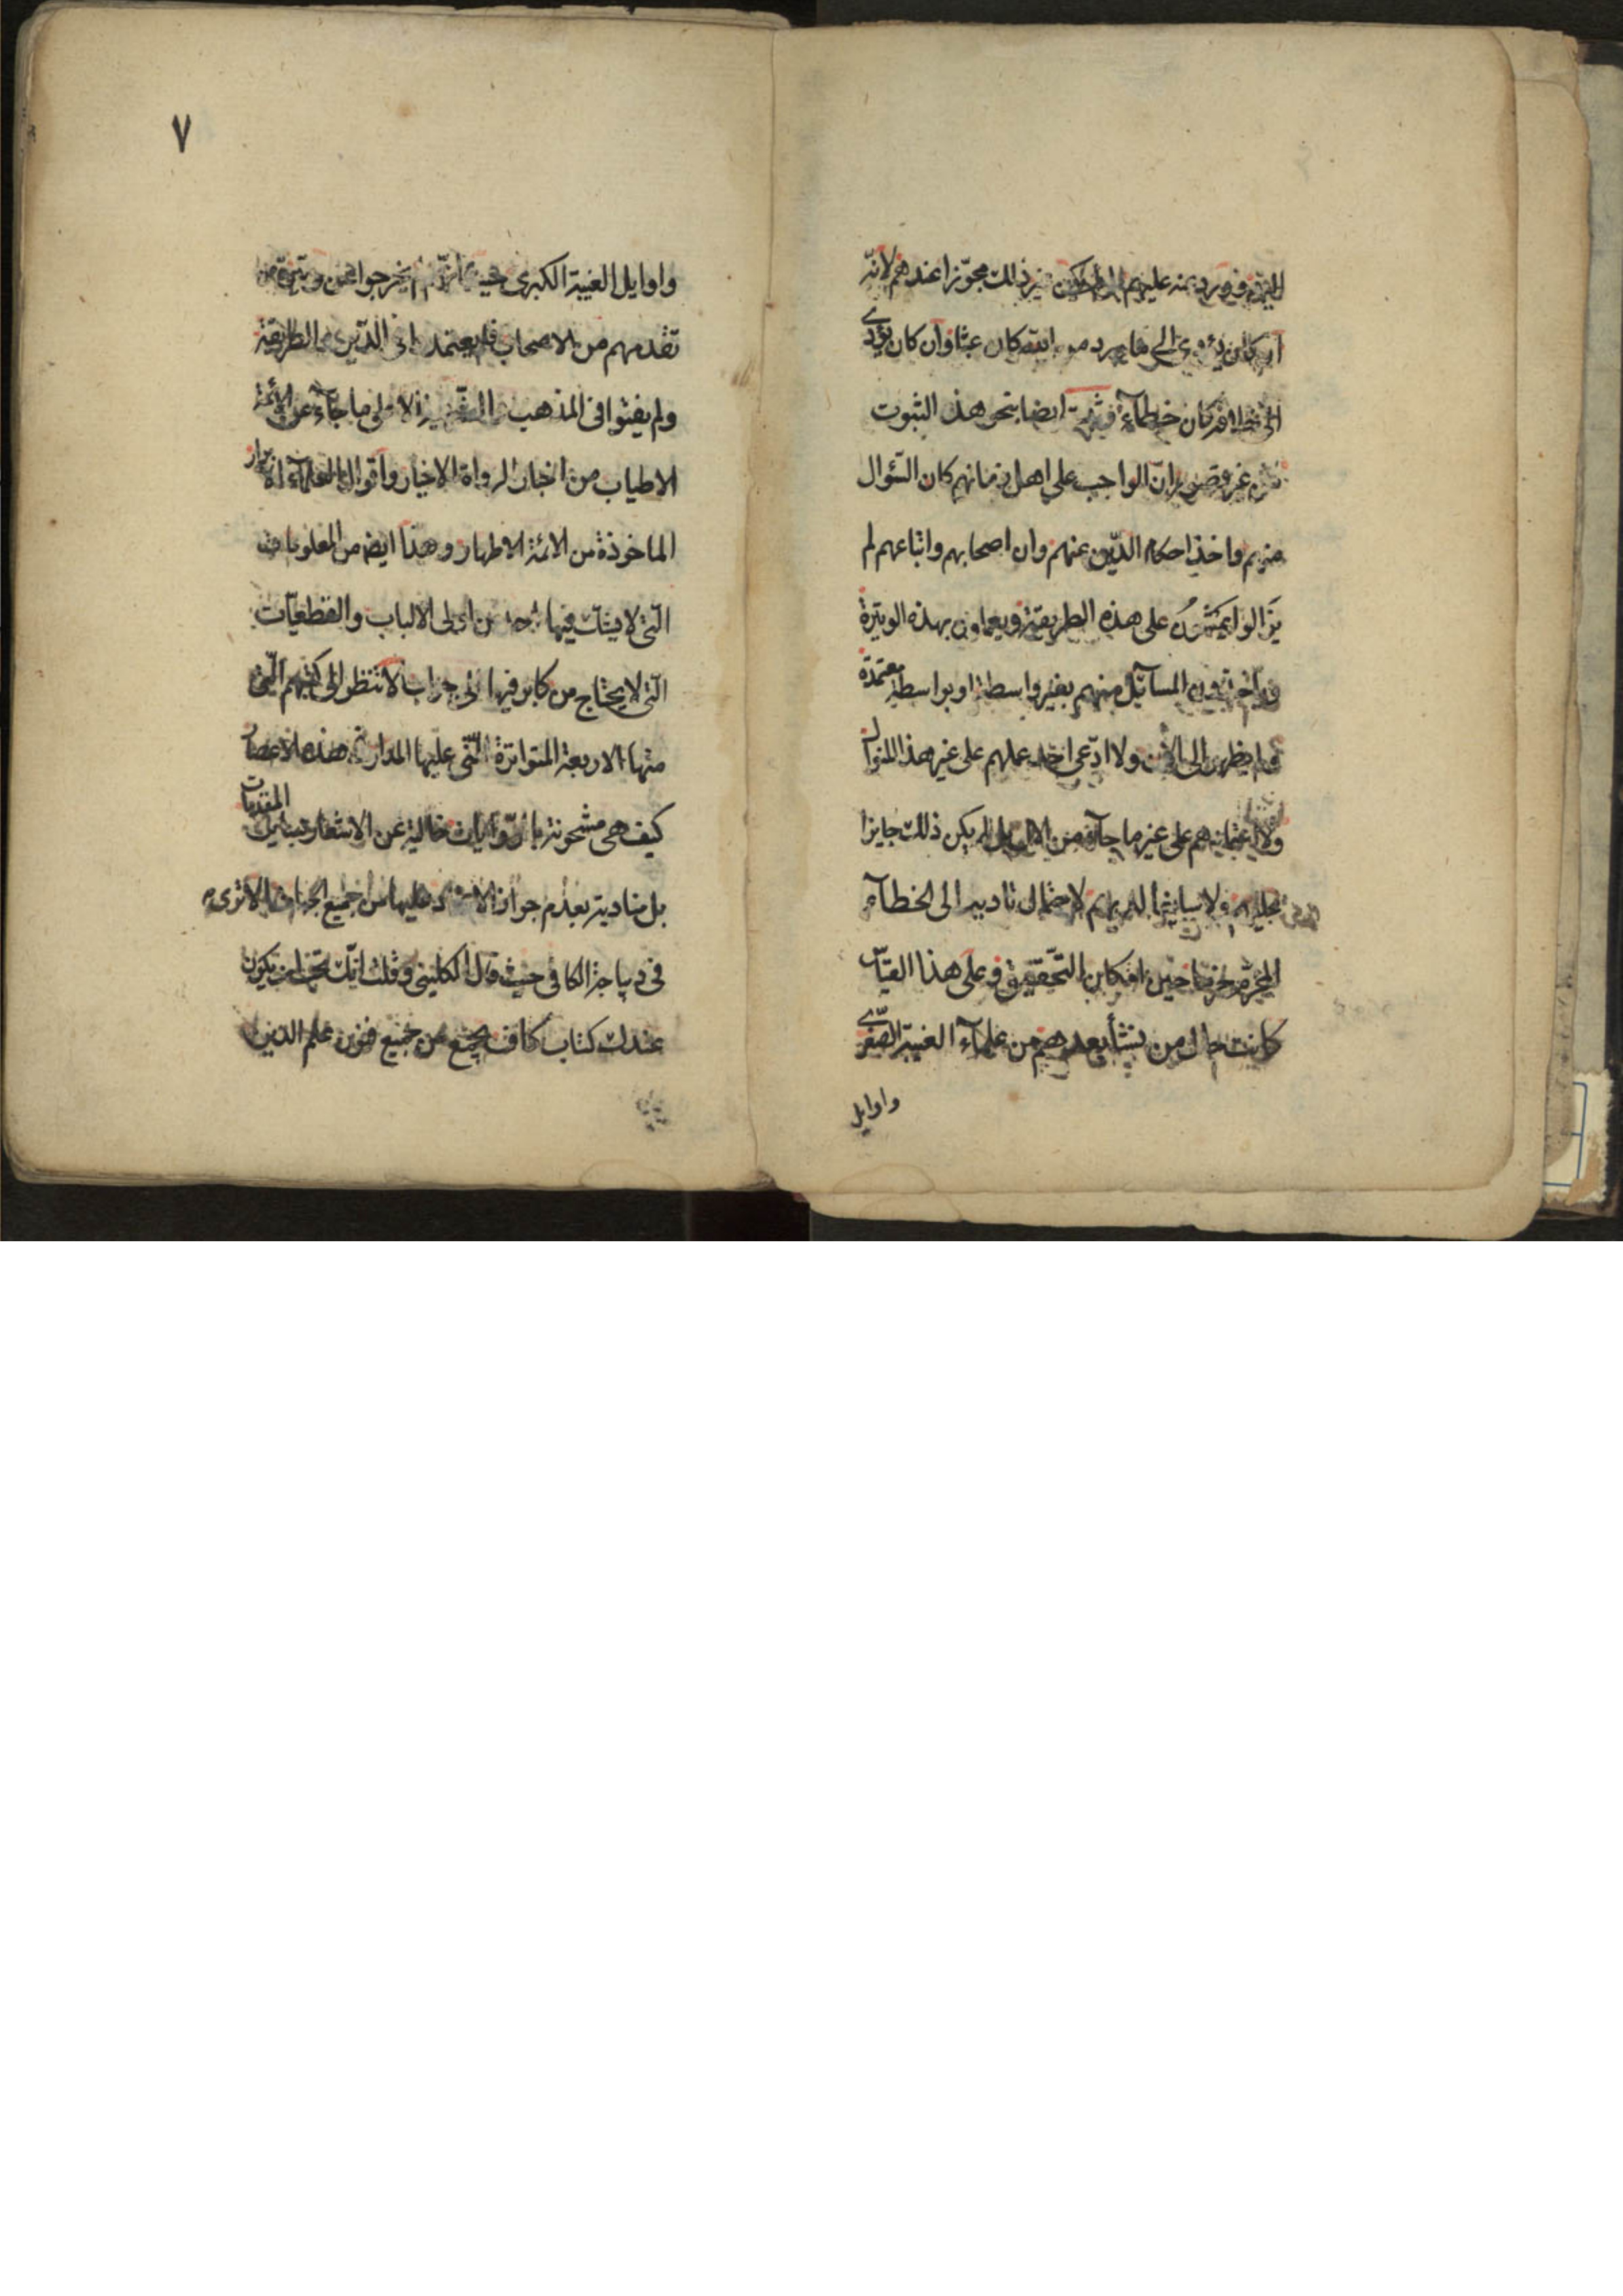 ذلك مجوّزا عندهم لانّه
كان عبثا وان كان يؤدى
كان خطآء ايضا بنحو هذا الثبوت
انّ الواجب على اهل زمانهم كان السّؤال
منهم واخذ احكام الدّين عنهم وان اصحابهم واتباعهم لم
يزالوا يمشون على هذه الطريقة ويعملون بهذه الوتيرة
المسآئل منهم بغير واسطة او بواسطة معتمدة
ولم يظهر الى الآن ولا ادّعى احد عملهم على غير هذا المنوال
ولا اعتمادهم على غير ما جآء من لم يكن ذلك جايزا
لاحتمال تاديه الى الخطآء
حين امكان التّحقيق وعلى هذا القياس
كانت حال من نشأ بعدهم من علمآء الغيبة الصّغرى
واوايل
٧
واوايل الغيبة الكبرى حيث انّهم لم يخرجوا عن وتيرة من
تقدمهم من الاصحاب فلم يعتمدوا فى الدّين الطريقة
ولم يفتوا فى المذهب الا على ما جآء عن الأئمة
الاطياب من اخبار الرواة الاخيار واقوال العلمآء الابرار
الماخوذة من الائمة الاطهار وهذا ايضا من المعلومات
الّتى لا يشك فيها احد من اولى الالباب والقطعيّات
الّتى لا يحتاج من كابر فيها الى جواب الا تنظر الى كتبهم الّتى
منها الاربعة المتواترة الّتى عليها المدار فى هذه الاعصار
كيف هى مشحونة بالرّوايات خالية عن الاشعار بتلك المقدمات
بل منادية بعدم جواز الاعتماد عليها من جميع الجهات الا ترى
فى ديباجة الكافى حيث قال الكلينى وقلت انّك تحب ان يكون
عندك كتاب كاف يجمع من جميع فنون علم الدين